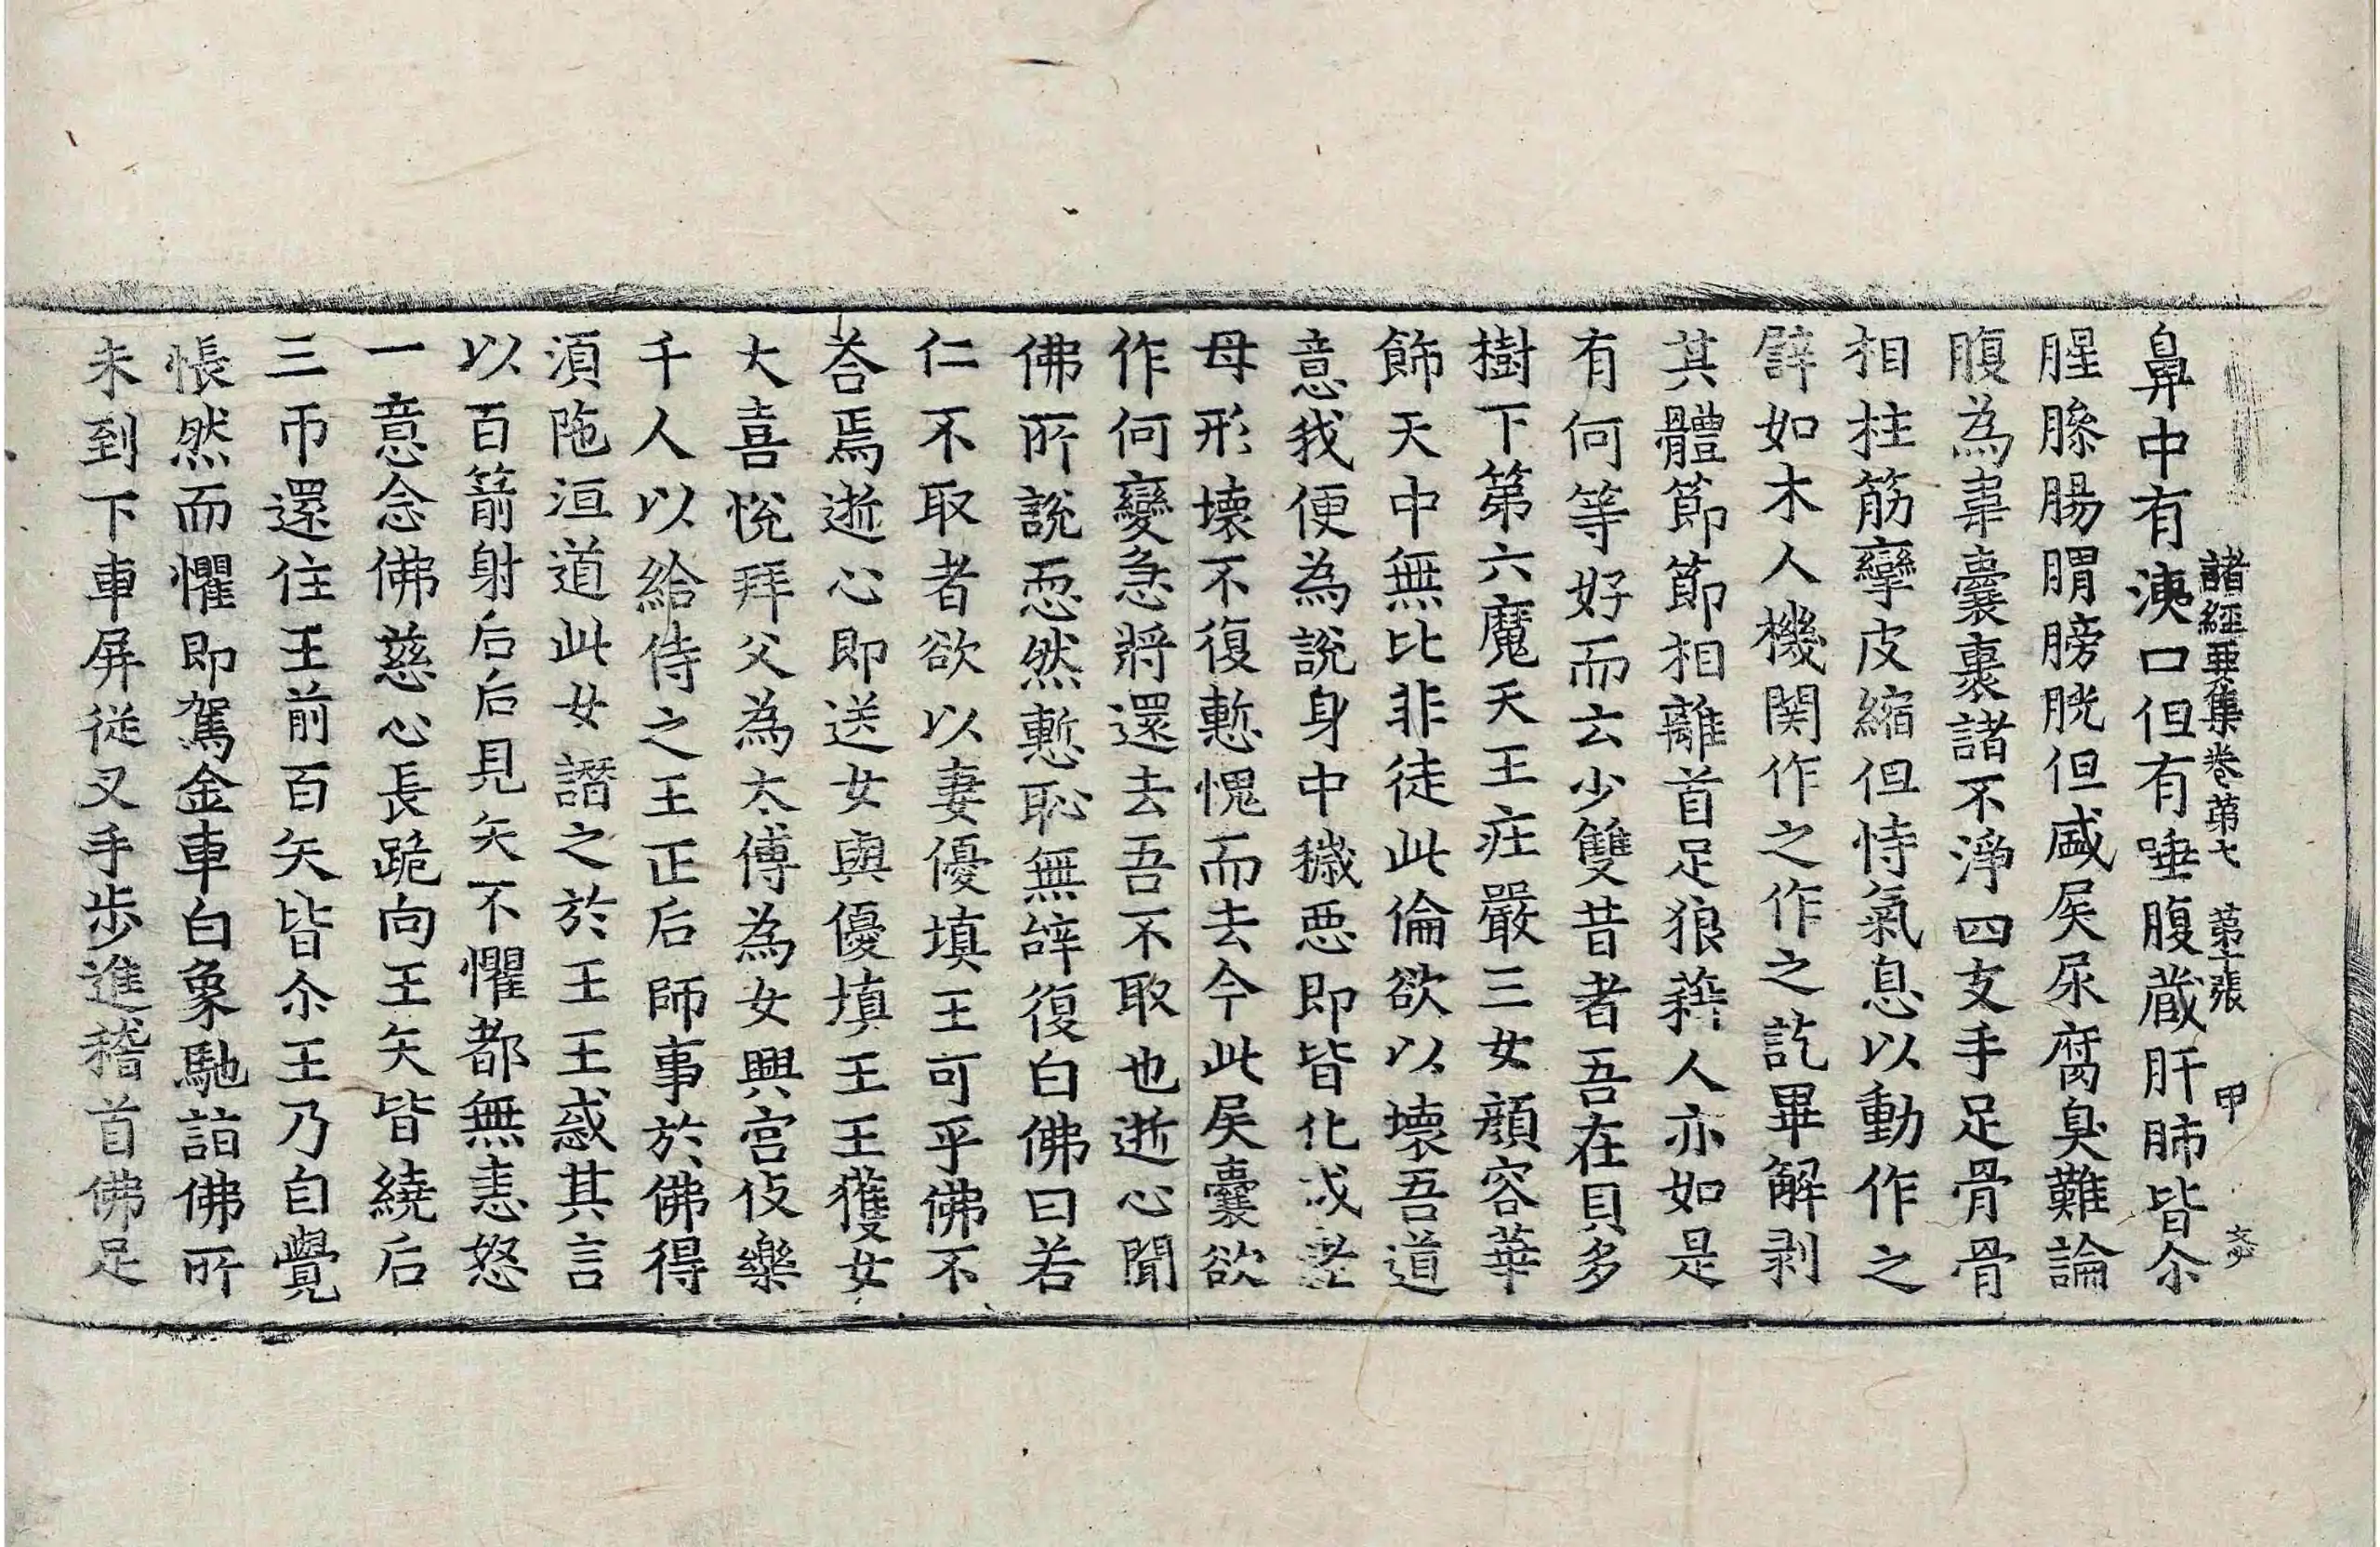 諸經要集卷第七　第十張　甲
鼻中有洟口但有唾腹藏肝肺皆尒
腥臊腸胃膀胱但盛屎尿腐臭難論
腹為韋囊裹諸不淨四支手足骨骨
相柱筋攣皮縮但恃氣息以動作之
辟如木人機関作之作之訖畢解剥
其體節節相離首足狼藉人亦如是
有何等好而云少雙昔者吾在貝多
樹下第六魔天王莊嚴三女顔容華
飾天中無比非徒此倫欲以壞吾道
意我便為說身中穢惡即皆化成老
母形壞不復慙愧而去今此屎囊欲
作何變急將還去吾不取也逝心聞
佛所說惡然慙恥無辞復白佛曰若
仁不取者欲以妻優填王可乎佛不
荅焉逝心即送女與優填王王獲女
大喜悅拜父為太傅為女興宮伎樂
千人以給侍之王正后師事於佛得
須陁洹道此女譖之於王王惑其言
以百箭射后后見矢不懼都無恚怒
一意念佛慈心長跪向王矢皆繞后
三帀還住王前百矢皆尒王乃自覺
悵然而懼即駕金車白象馳詣佛所
未到下車屏從叉手步進稽首佛足